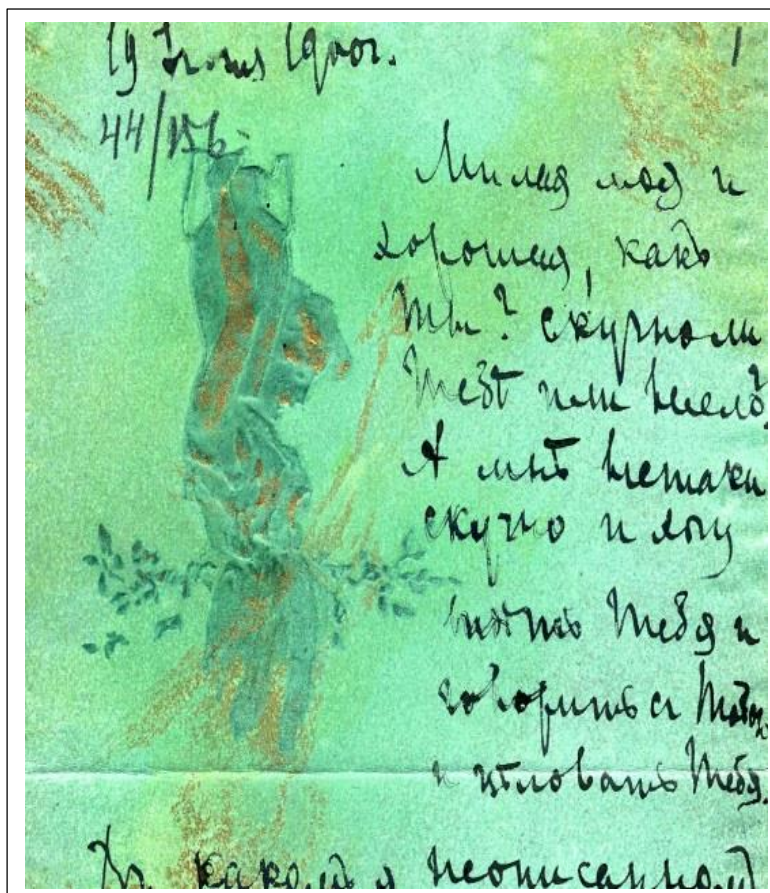 19 Июня 1900г.
1
44/156
Милая моя и
хорошая, какъ
ты? скучно ли
тебѣ или весело?
А мнѣ всетаки
скучно и хочу
видѣть тебя и
говорить съ тобою
и цѣловать тебя.
Въ какомъ я неописанном